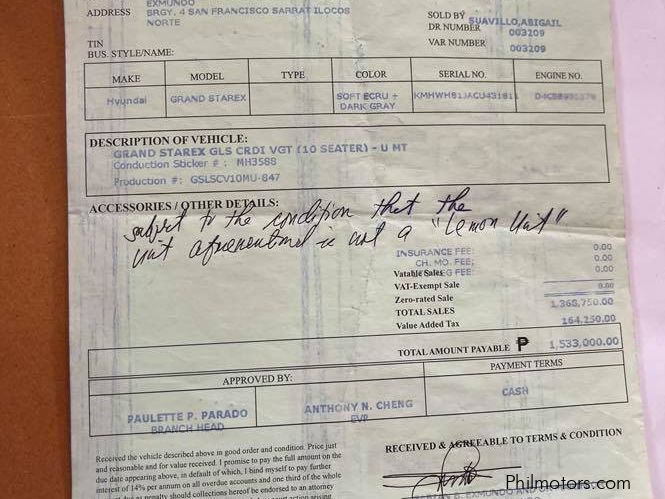 EXMUNDO
ADDRESS BRGY. 4 SAN FRANCISCO SARRAT ILOCOS
NORTE
SOLD BY SUAVILLO,ABIGAIL
DR NUMBER 003209
TIN
VAR NUMBER 003209
BUS. STYLE/NAME:
MAKE MODEL TYPE COLOR SERIAL NO. ENGINE NO.
Hyundai GRAND STAREX SOFT ECRU + DARK GRAY
DESCRIPTION OF VEHICLE:
GRAND STAREX GLS CRDI VGT (10 SEATER) - U MT
Conduction Sticker # : MH3588
Production #: GSLSCV10MU-847
ACCESSORIES / OTHER DETAILS:
subject to the condition that the
unit aforementioned is not a "Lemon Unit"
INSURANCE FEE: 0.00
CH. MO. FEE; 0.00
Vatable Sales FEE; 0.00
VAT-Exempt Sale 0.00
Zero-rated Sale
TOTAL SALES 1,368,750.00
Value Added Tax 164,250.00
TOTAL AMOUNT PAYABLE ₱ 1,533,000.00
APPROVED BY: PAYMENT TERMS
CASH
PAULETTE P. PARADO ANTHONY N. CHENG
BRANCH HEAD EVP
Received the vehicle described above in good order and condition. Price just
and reasonable and for value received. I promise to pay the full amount on the
due date appearing above, in default of which, I bind myself to pay further
interest of 14% per annum on all overdue accounts and one third of the whole
due as penalty should collections hereof be endorsed to an attorney
RECEIVED & AGREEABLE TO TERMS & CONDITION
EXMUNDO AND
Philmotors.com